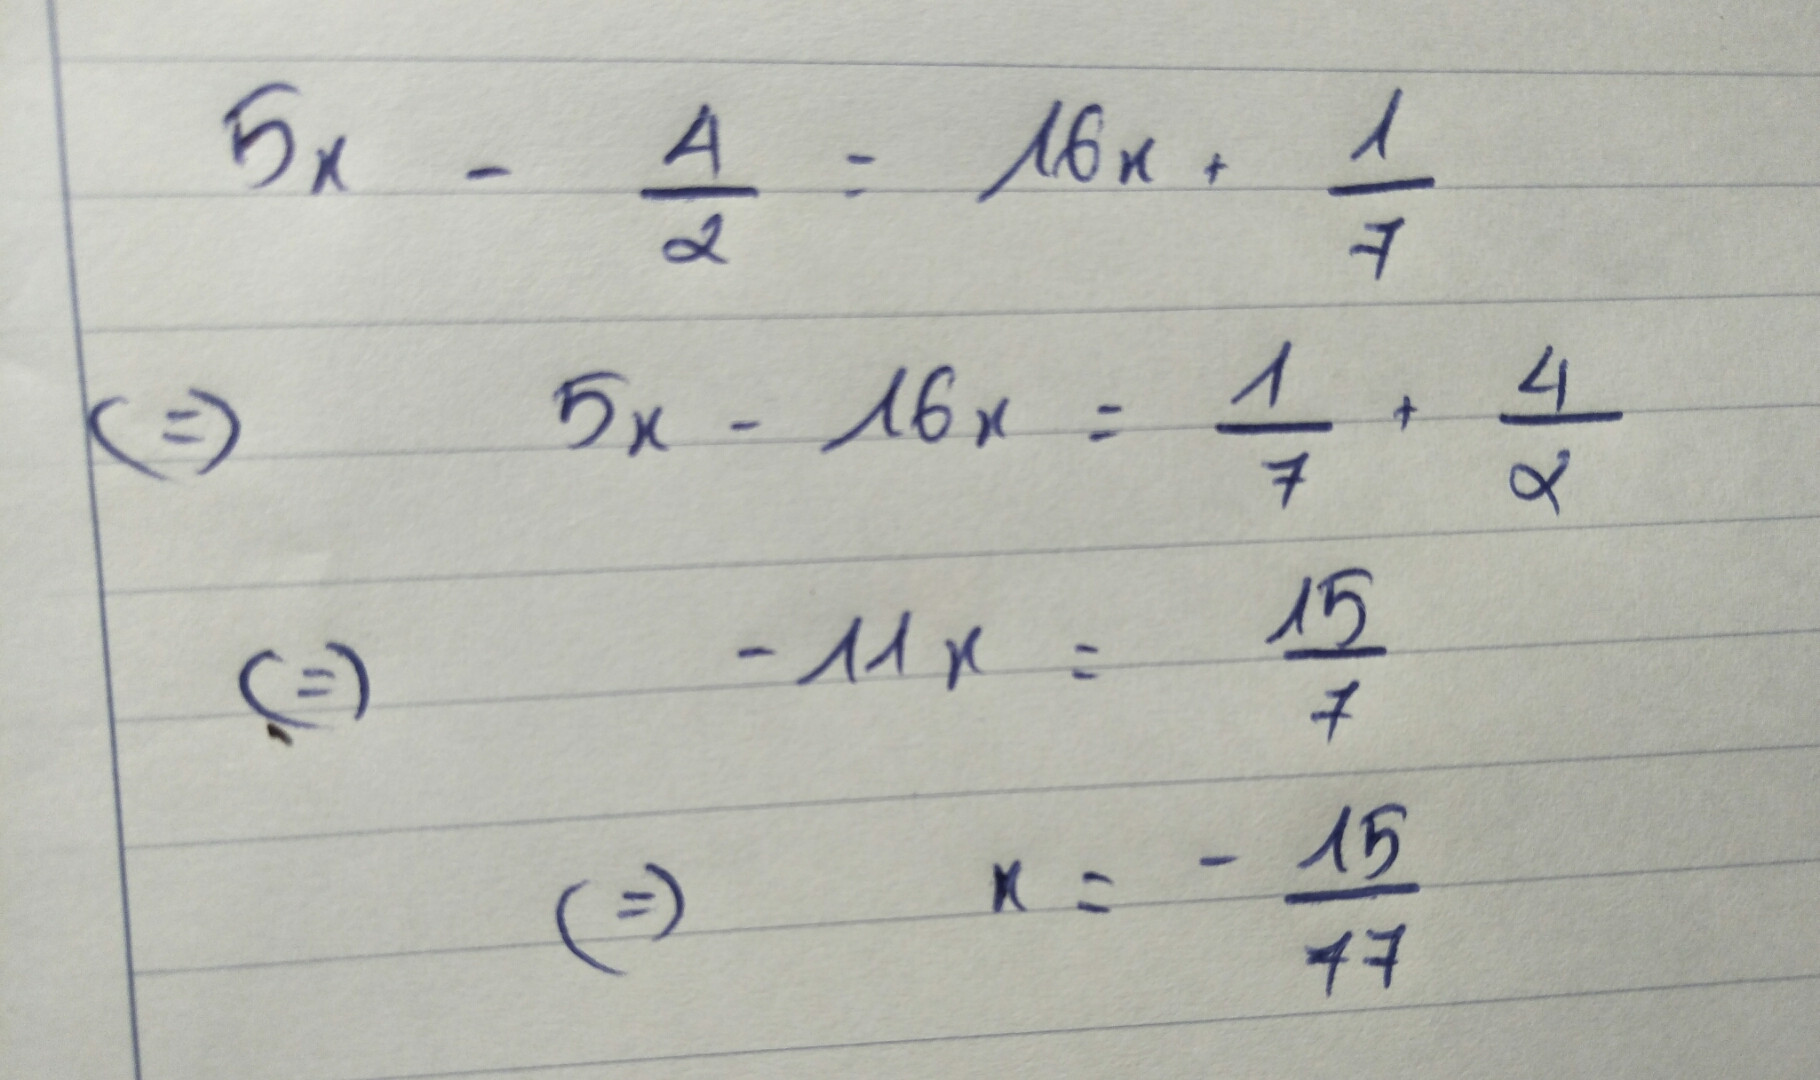 5x - 4/2 = 16x + 1/7
(=) 5x - 16x = 1/7 + 4/2
(=) -11x = 15/7
(=) x = - 15/77